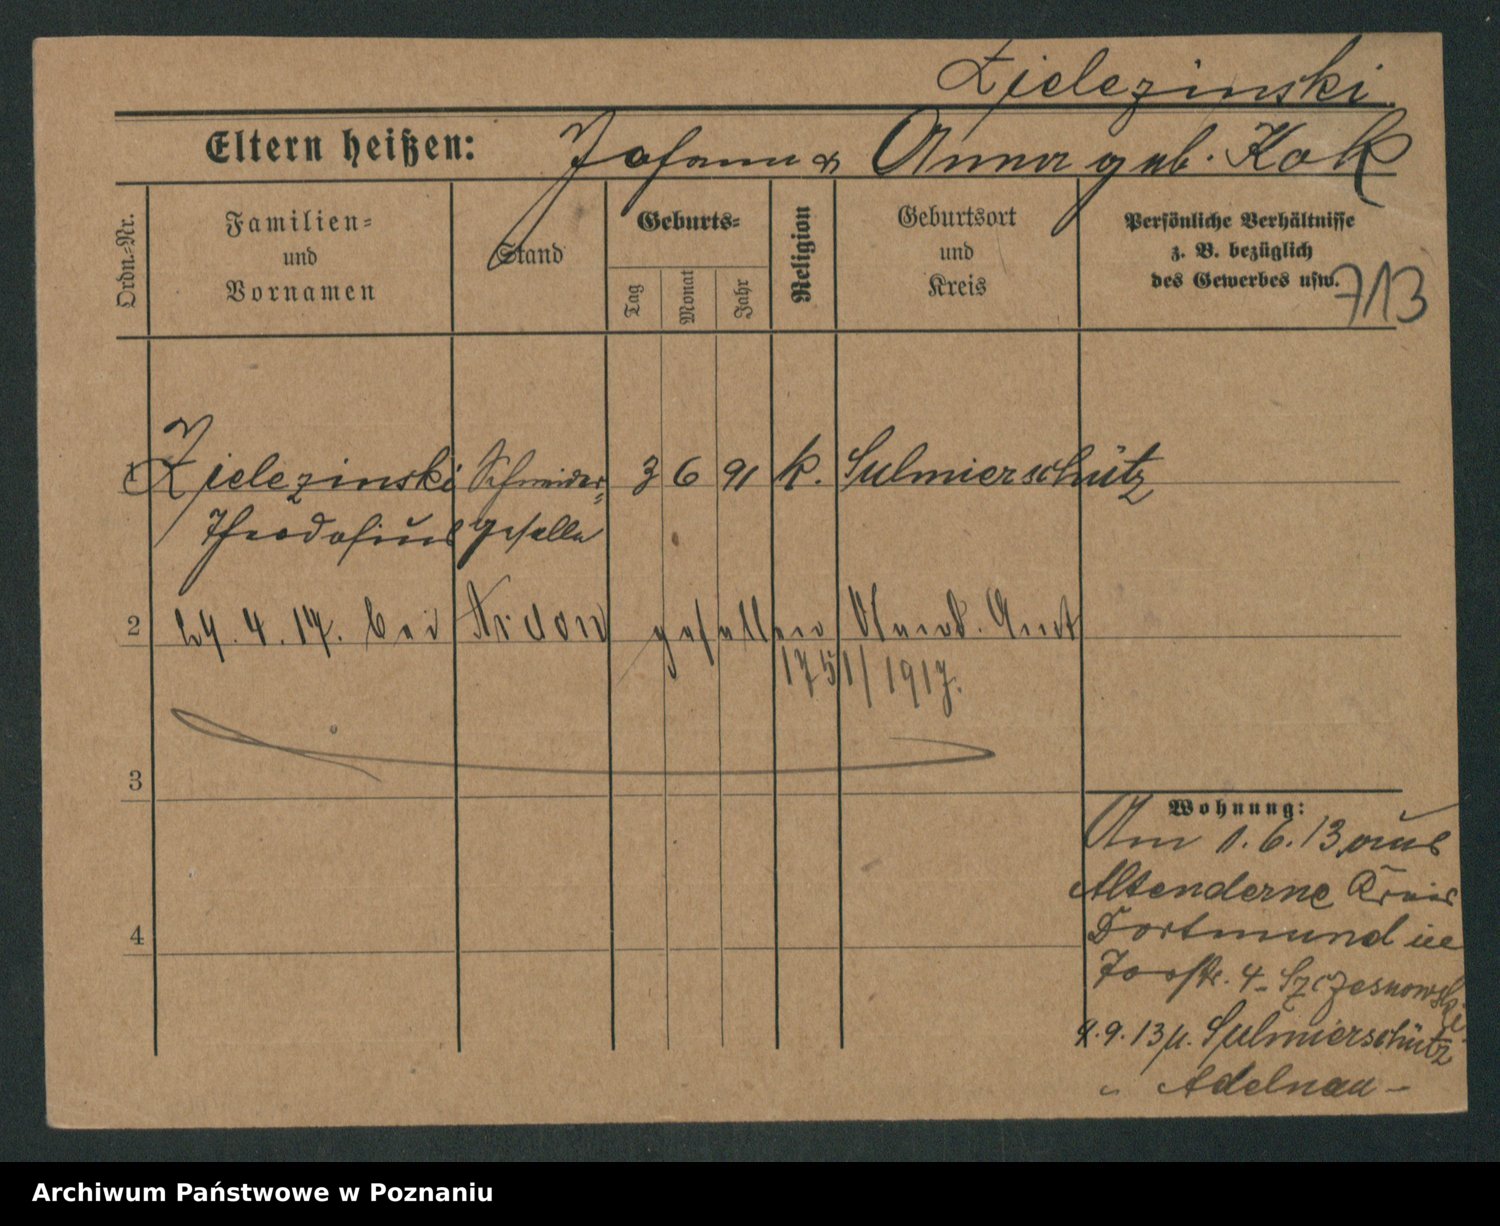 Zielezinski
Eltern heißen: Johann & Anna geb. Kok
Ordn.-Nr.
Familien-
und
Vornamen
Stand
Geburts-
Tag
Monat
Jahr
Religion
Geburtsort
und
Kreis
Persönliche Verhältnisse
z. B. bezüglich
des Gewerbes usw.
713
1 Zielezinski Schneider- 3 6 91 k. Sulmierschütz
Theodosius geselle
2 24. 4. 17. bei gefallen Stand. Amt
1751/1917.
3
Wohnung:
Am 1. 6. 13 aus
Altenderne Kreis
Dortmund in
4. Szczesnowski
4
9. 9. 13 n. Sulmierschütz
" Adelnau -
Archiwum Państwowe w Poznaniu